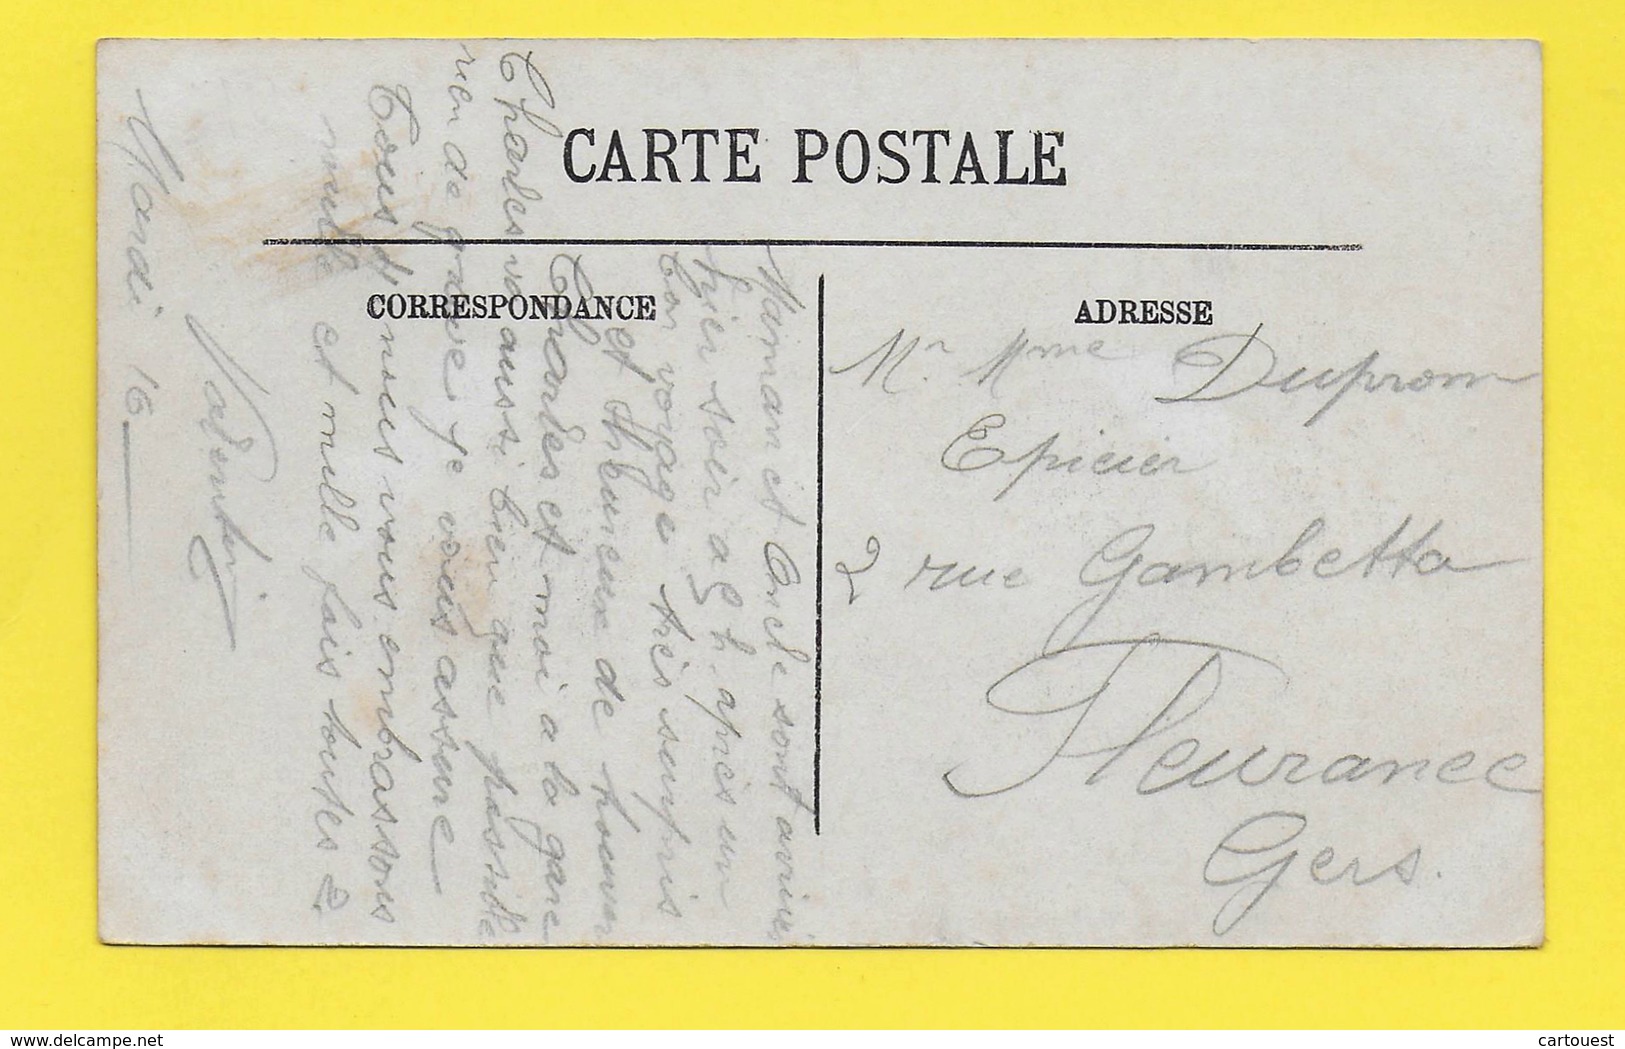 CARTE POSTALE
CORRESPONDANCE
ADRESSE
Mr Mme Duprom
Epicier
2 rue Gambetta
Fleurance
Gers.
Maman et Oncle sont arrivés
hier soir a 5 h. après un
bon voyage très surpris
et heureux de trouver
Charles et moi a la gare
Charles va aussi bien que possible
rien de grave je vous assure
Tous d nous vous embrassons
mille et mille fois toutes 2.
Mardi 16